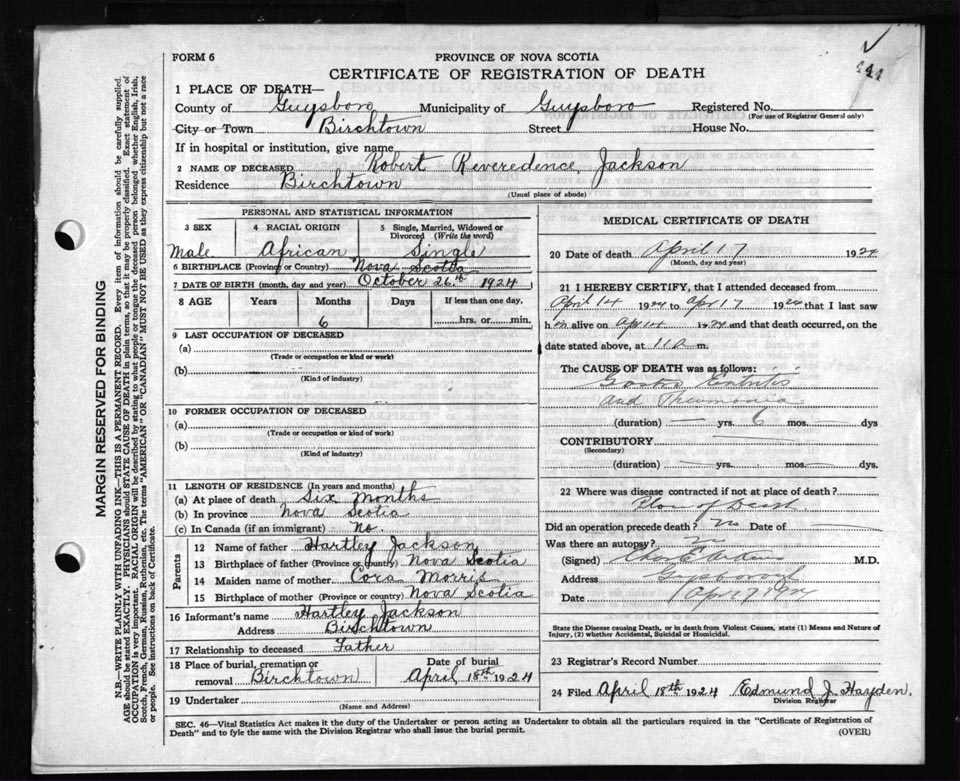 441
FORM 6
PROVINCE OF NOVA SCOTIA
CERTIFICATE OF REGISTRATION OF DEATH
1 PLACE OF DEATH—
County of Guysboro Municipality of Guysboro Registered No.
(For use of Registrar General only)
City or Town Birchtown Street House No.
If in hospital or institution, give name
2 NAME OF DECEASED Robert Reveredence Jackson
Residence Birchtown
(Usual place of abode)
PERSONAL AND STATISTICAL INFORMATION
3 SEX 4 RACIAL ORIGIN 5 Single, Married, Widowed or
Divorced (Write the word)
Male African Single
6 BIRTHPLACE (Province or Country) Nova Scotia
7 DATE OF BIRTH (month, day and year) October 26th 1924
8 AGE Years Months Days If less than one day,
6 hrs. or min.
9 LAST OCCUPATION OF DECEASED
(a)
(Trade or occupation or kind or work)
(b)
(Kind of industry)
10 FORMER OCCUPATION OF DECEASED
(a)
(Trade or occupation or kind of work)
(b)
(Kind of industry)
11 LENGTH OF RESIDENCE (In years and months)
(a) At place of death Six Months
(b) In province Nova Scotia
(c) In Canada (if an immigrant) No.
Parents
12 Name of father Hartley Jackson
13 Birthplace of father (Province or country) Nova Scotia
14 Maiden name of mother Cora Morris
15 Birthplace of mother (Province or country) Nova Scotia
16 Informant's name Hartley Jackson
Address Birchtown
17 Relationship to deceased Father
18 Place of burial, cremation or Date of burial
removal Birchtown April 18th 1924
19 Undertaker
(Name and Address)
MEDICAL CERTIFICATE OF DEATH
20 Date of death April 17 1924
(Month, day and year)
21 I HEREBY CERTIFY, that I attended deceased from
April 14 1924 to Apr 17 1924 that I last saw
h im alive on Apr 14 1924 and that death occurred, on the
date stated above, at 11 a m.
The CAUSE OF DEATH was as follows:
Gastro Entritis
and Pneumonia
(duration) — yrs. 6 mos. — dys
CONTRIBUTORY
(Secondary)
(duration) — yrs. — mos. — dys.
22 Where was disease contracted if not at place of death?
Place of Death
Did an operation precede death? No Date of
Was there an autopsy? No
(Signed) M.D.
Address Guysborough
Date Apr 17 1924
State the Disease causing Death, or in death from Violent Causes, state (1) Means and Nature of
Injury, (2) whether Accidental, Suicidal or Homicidal.
23 Registrar's Record Number
24 Filed April 18th 1924 Edmund J. Hayden.
Division Registrar
SEC. 46—Vital Statistics Act makes it the duty of the Undertaker or person acting as Undertaker to obtain all the particulars required in the "Certificate of Registration of
Death" and to fyle the same with the Division Registrar who shall issue the burial permit.
(OVER)
MARGIN RESERVED FOR BINDING
N.B.—WRITE PLAINLY WITH UNFADING INK—THIS IS A PERMANENT RECORD. Every item of information should be carefully supplied.
AGE should be stated EXACTLY. PHYSICIANS should STATE CAUSE OF DEATH in plain terms, so that it may be properly classified. Exact statement of
OCCUPATION is very important. RACIAL ORIGIN will be described by stating to what people or tongue the deceased person belonged whether English, Irish,
Scotch, French, German, Russian, Ruthenian, etc. The terms "AMERICAN" OR "CANADIAN" MUST NOT BE USED as they express citizenship but not a race
or people. See instructions on back of Certificate.